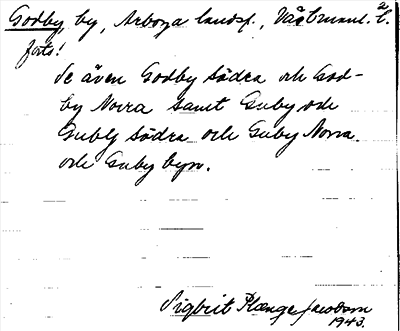 Godby, by, Arboga landsf., Västmanl. l.
forts!
Se även Godby södra och God-
by Norra samt Guby och
Guby södra och Guby Norra.
och Guby byn.
Sigbrit Plænge Jacobson
1943.